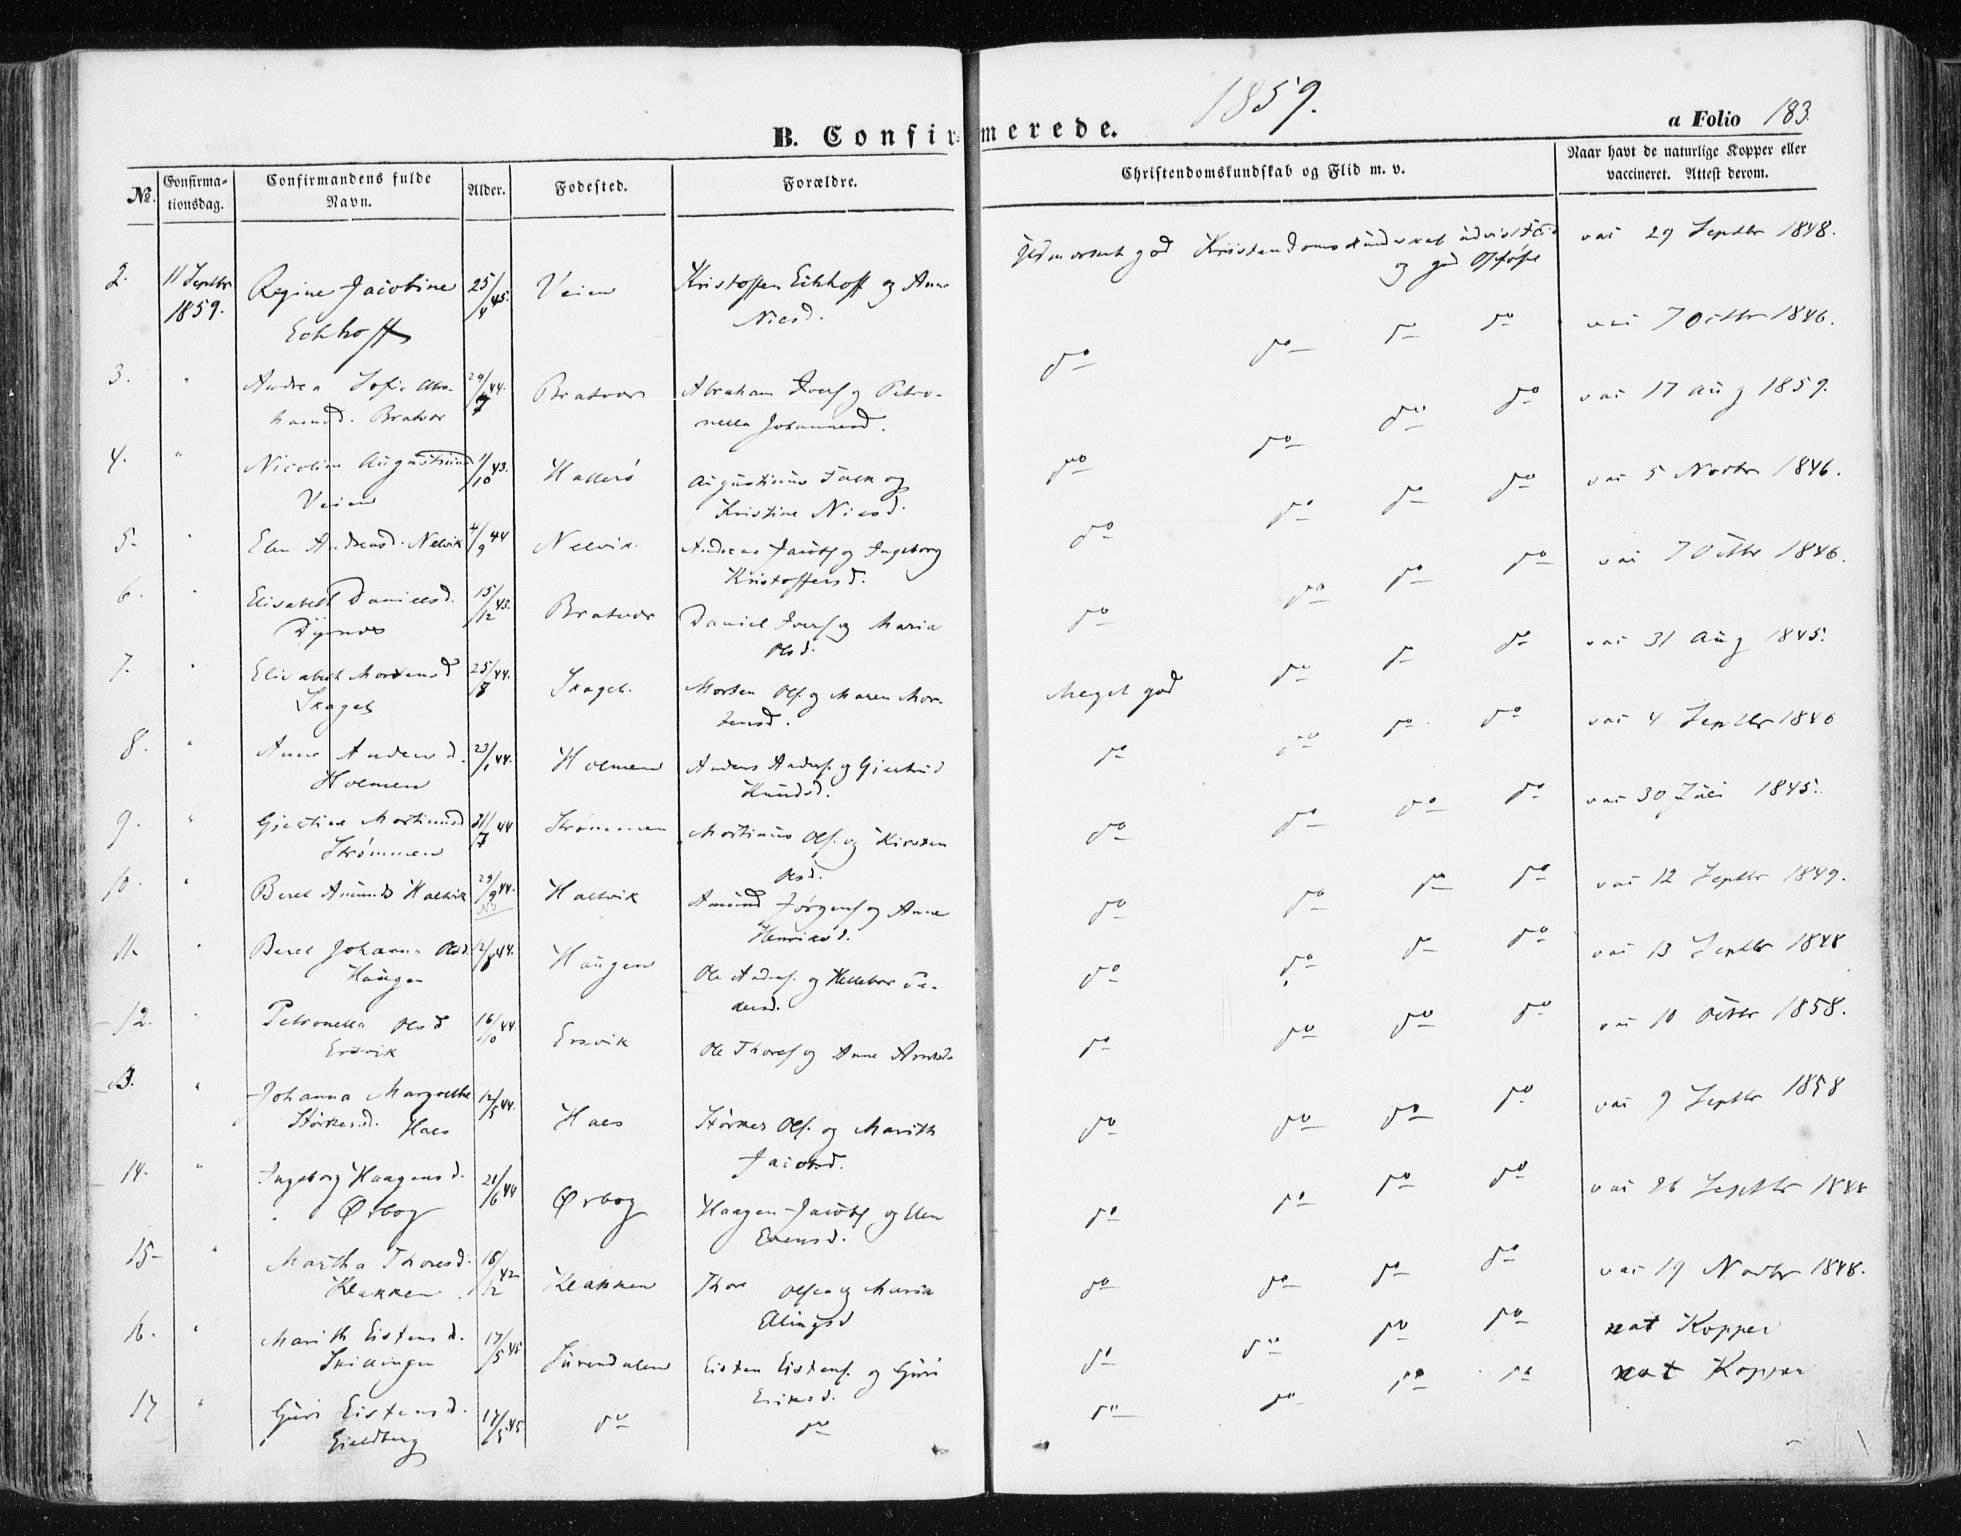 1859.
B. Confirmerede.
a Folio 183.
No.
Confirmationsdag.
Confirmandens fulde Navn.
Alder.
Fødested.
Forældre.
Christendomskundskab og Flid m. v.
Naar havt de naturlige Kopper eller vaccineret. Attest derom.
2. 11 Septbr 1859. Regine Jacobine 25/4 45. Veien Kristoffer Eckhoff og Anne Udmærket god Kristendomskundskab udvist Flid vac 29 Septbr 1848.
Eckhoff Nicsd. og god Opførs
3. " Andrea Sofie Abra- 29/7 44. Bratvær Abraham Ivers og Petro- do do do do vac 7 Octbr 1846.
hamsd. Bratvær nella Johannesd.
4. " Nicoline Augustinusd 1/10 43. Hallerø Augustinus Falk og do do do do vac 17 Aug 1859.
Veien Kristine Nicsd.
5. " Elen Andreasd. Nelvik 4/9 44 Nelvik. Andreas Jacobs og Ingeborg do do do do vac 5 Novbr 1846.
Kristoffersd.
6. " Elisabeth Danielsd. 15/12 43. Bratvær Daniel Ivers og Maria do do do do vac 7 Octbr 1846.
Dyrnes Olsd.
7. " Elisabeth Mortensd 25/8 44. Skaget. Morten Ols. og Maren Mor- Meget god do do do vac 31 Aug 1845.
Skaget tensd.
8. " Anne Andersd. 23/1 44. Holmen Anders Anders. og Gjertrud do do do do vac 4 Septbr 1846
Holmen Knudsd.
9. " Gjertine Mortinusd 31/7 44 Strømmen Mortinus Ols. og Kirsten do do do do vac 30 Juli 1845.
Strømmen Olsd.
10. " Beret Amunds Halvik 29/9 44. Halvik Amund Jørgens og Anne do do do do vac 12 Septbr 1849.
Henriksd.
11. " Beret Johanna Olsd. 12/8 44. Haugen Ole Anders. og Hellebor Pe- do do do do vac 13 Septbr 1848
Haugen dersd.
12. " Petronella Olsd 16/10 44. Ersvik Ole Thores og Anne Arntsd. do do do do vac 10 Octbr 1858.
Ersvik
13. " Johanna Margrethe 12/5 44. Haes Størker Ols. og Marith do do do do vac 9 Septbr 1858
Størkersd. Haes Jacobsd.
14. " Ingeborg Haagensd. 21/6 44 Ørbog Haagen Jacobs og Elen do do do do vac 26 Septbr 1848
Ørbog Evensd.
15 " Martha Thoresd. 16/12 42 Klakken Thore Olsen og Maria do do do do vac 19 Novbr 1848.
Klakken Ellingsd
16. " Marith Eistensd. 17/5 45 Surendalen Eisten Eistens. og Guri do do do do nat Kopper
Skillingen Eriksd.
17 " Guri Eistensd. 17/5 45 do do do do do do nat Kopper
Gjeldberg